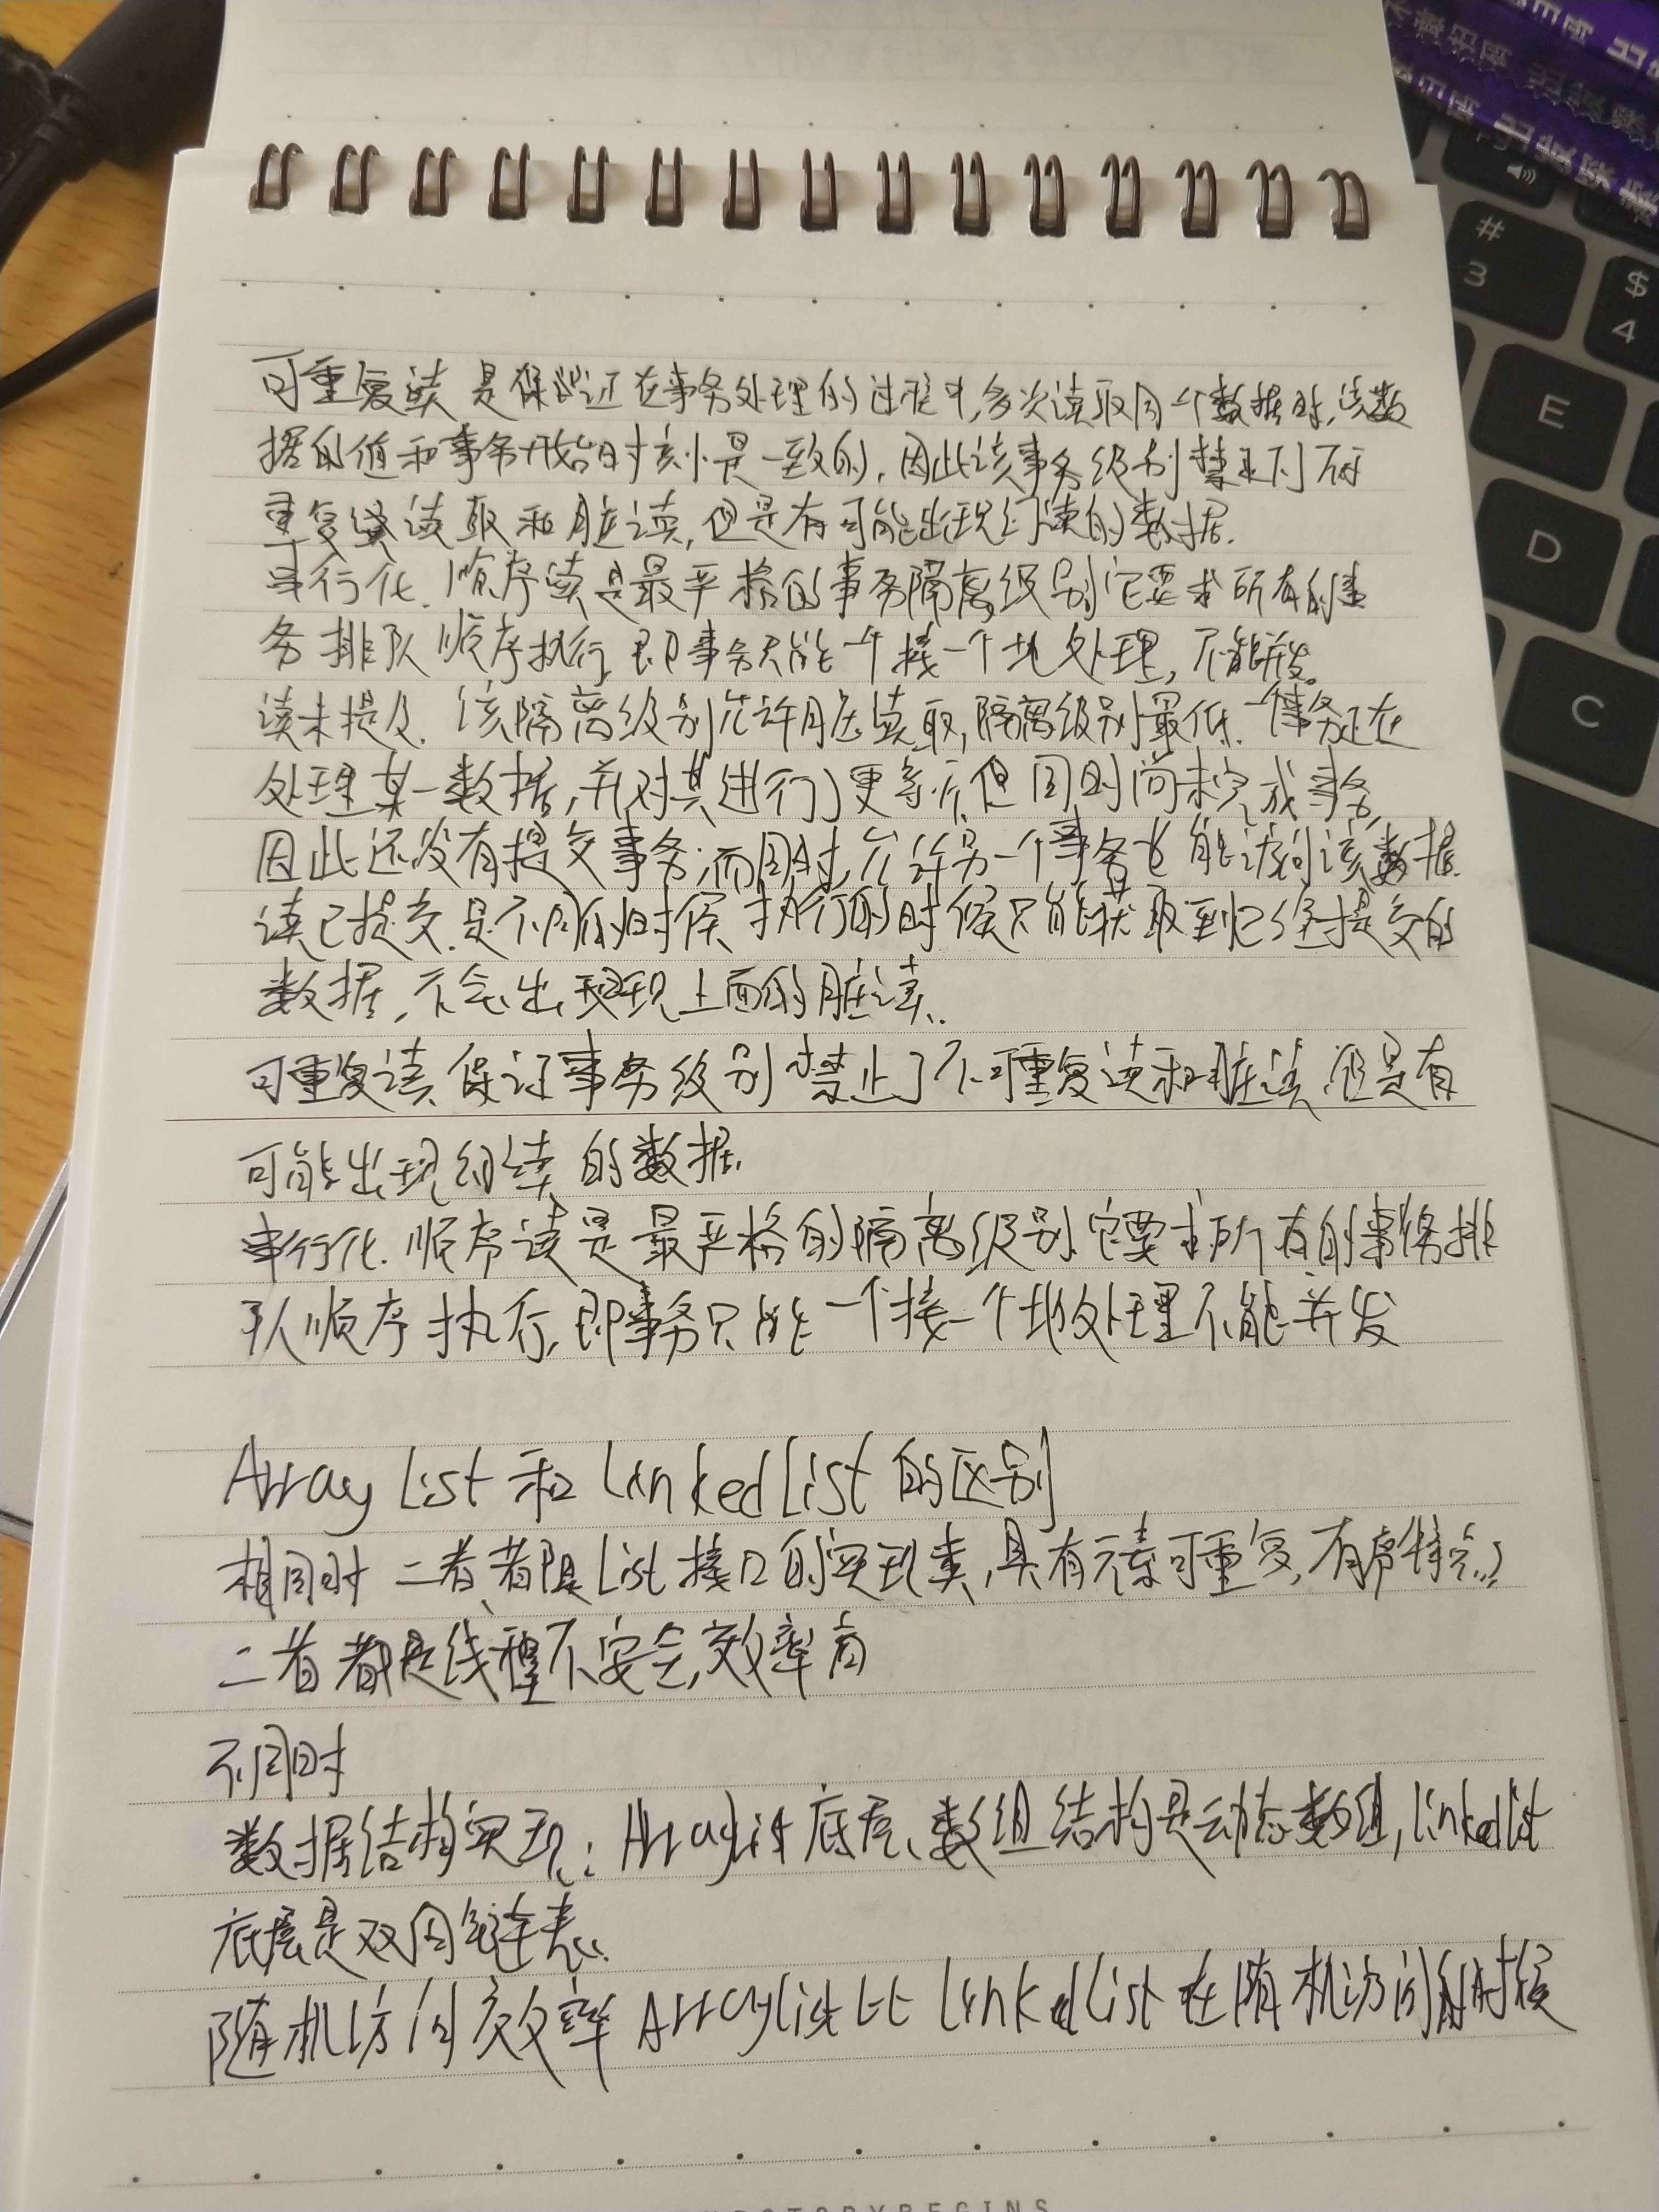 可重复读 是保证在事务处理的过程中,多次读取同一个数据时,该数
据的值和事务开始时刻是一致的,因此该事务级别禁止了不可
重复读取和脏读,但是有可能出现幻读的数据.
串行化.顺序读是最严格的事务隔离级别它要求所有的事
务排队顺序执行 即事务只能一个接一个地处理,不能并发。
读未提交.该隔离级别允许脏读取,隔离级别最低.一个事务正在
处理某一数据,并对其进行了更新,但同时尚未完成事务,
因此还没有提交事务;而同时,允许另一个事务也能访问该数据.
读已提交.是不同的时候 执行的时候只能获取到已经提交的
数据,不会出现上面的脏读.
可重复读 保证事务级别禁止了不可重复读和脏读,但是有
可能出现幻读的数据.
串行化.顺序读是最严格的隔离级别它要求所有的事务排
队顺序执行,即事务只能一个接一个地处理不能并发
ArrayList 和 LinkedList 的区别
相同时 二者都是List接口的实现类,具有元素可重复,有序特点
二者都是线程不安全,效率高
不同时
数据结构实现:ArrayList底层、数组结构是动态数组,linkedlist
底层是双向链表.
随机访问效率 ArrayList比 LinkedList 在随机访问的时候
# 3
$ 4
E
D
C